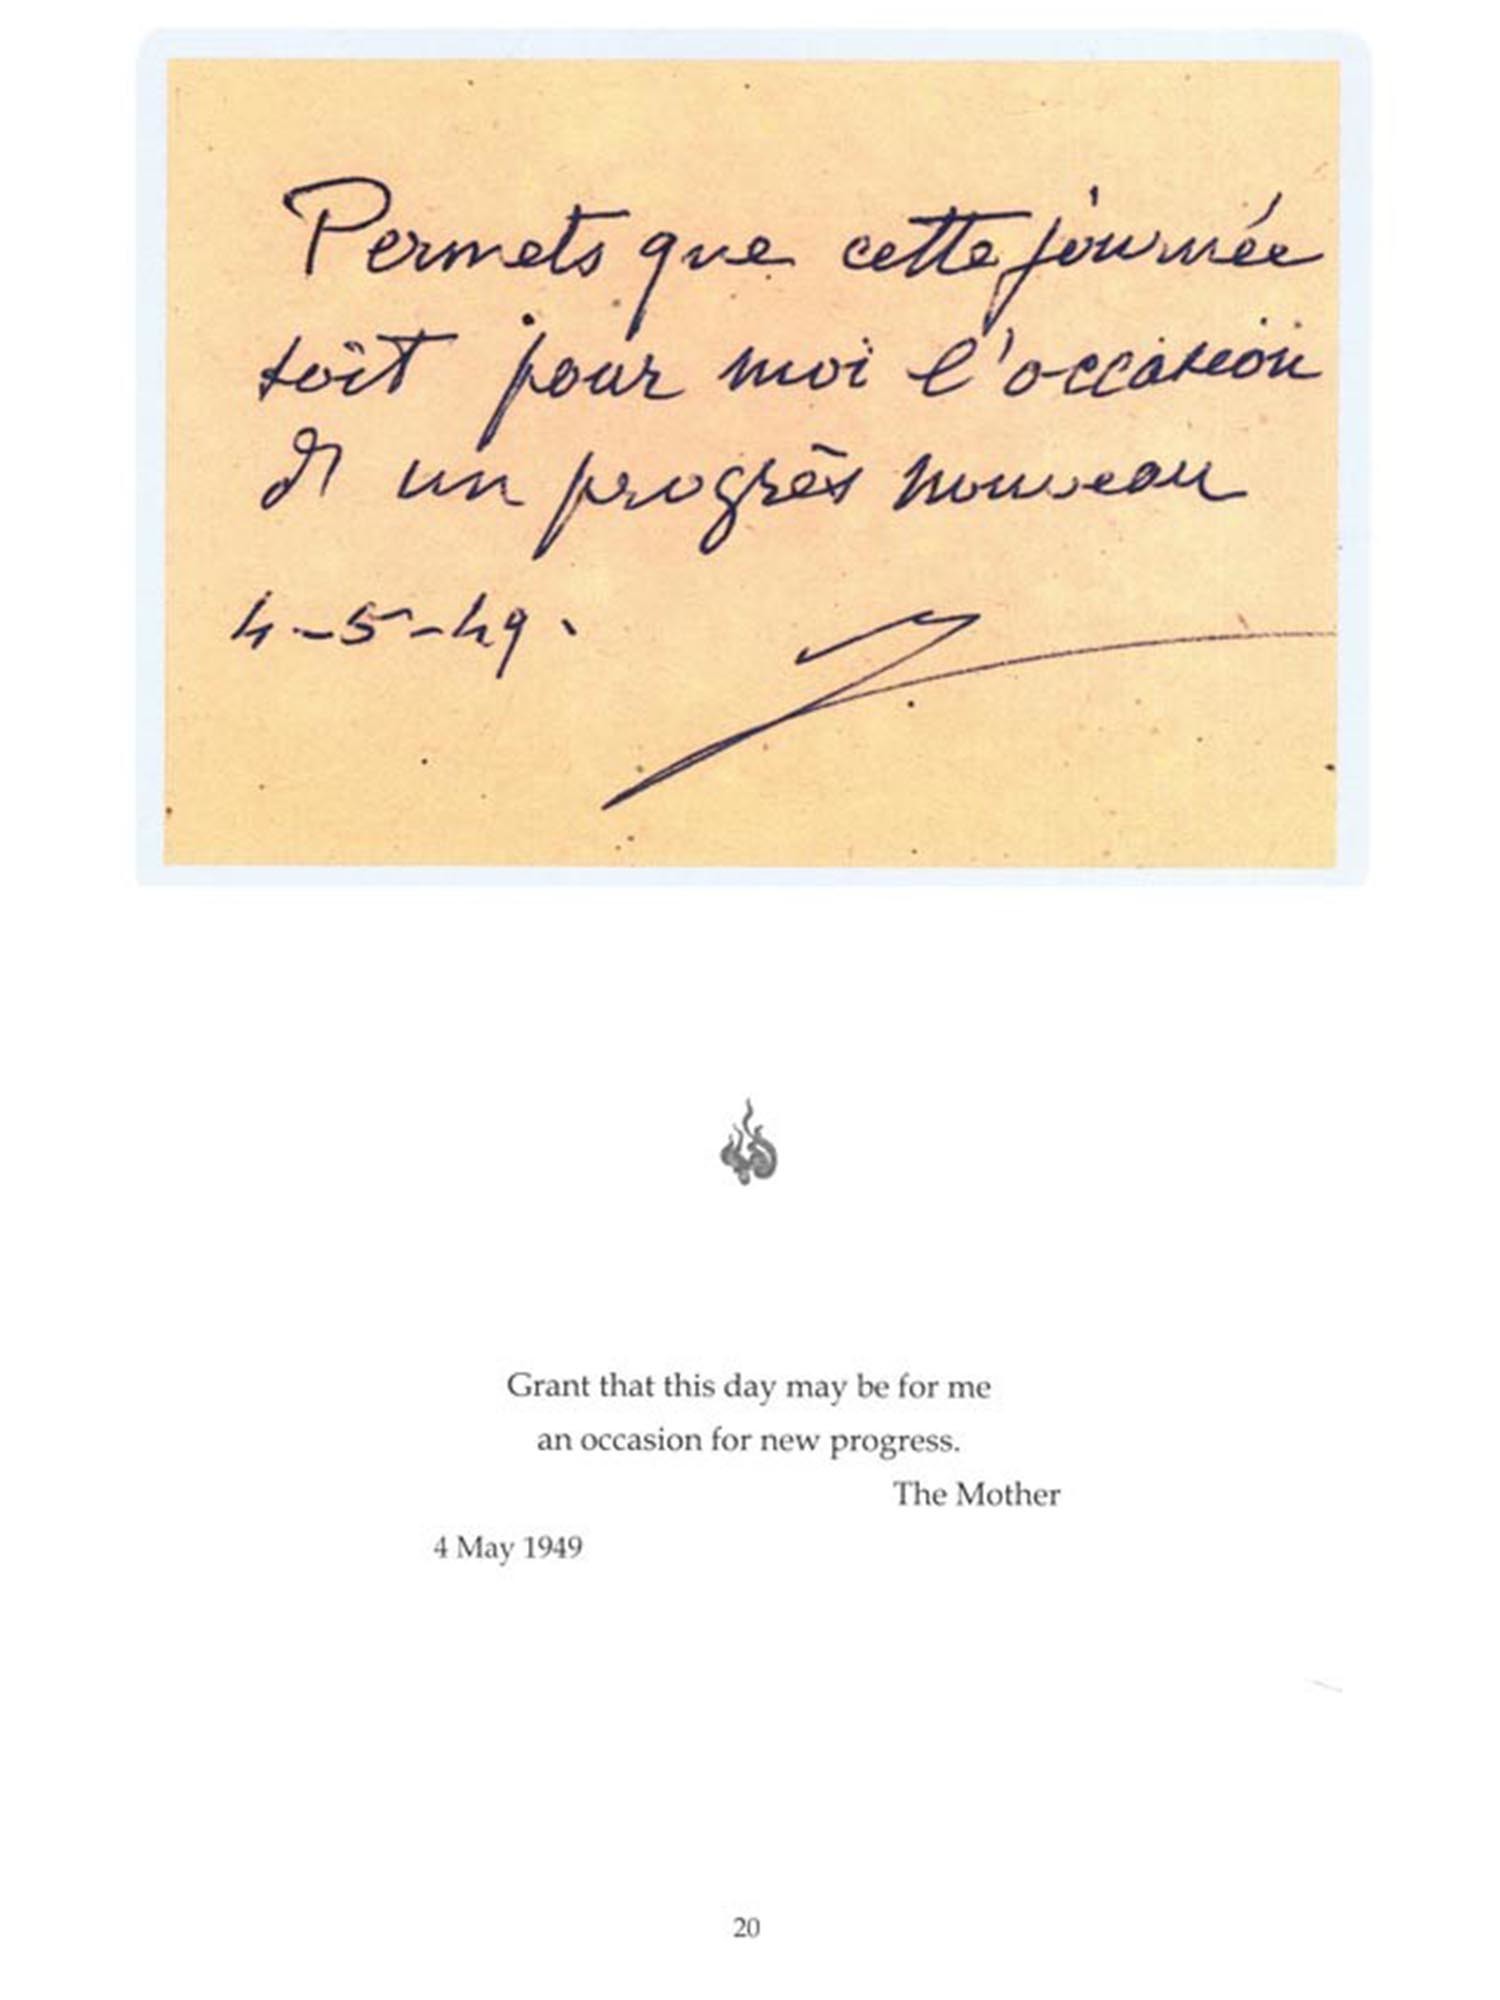 Permets que cette journée
soit pour moi l'occasion
d'un progrès nouveau
4-5-49.
Grant that this day may be for me
an occasion for new progress.
The Mother
4 May 1949
20